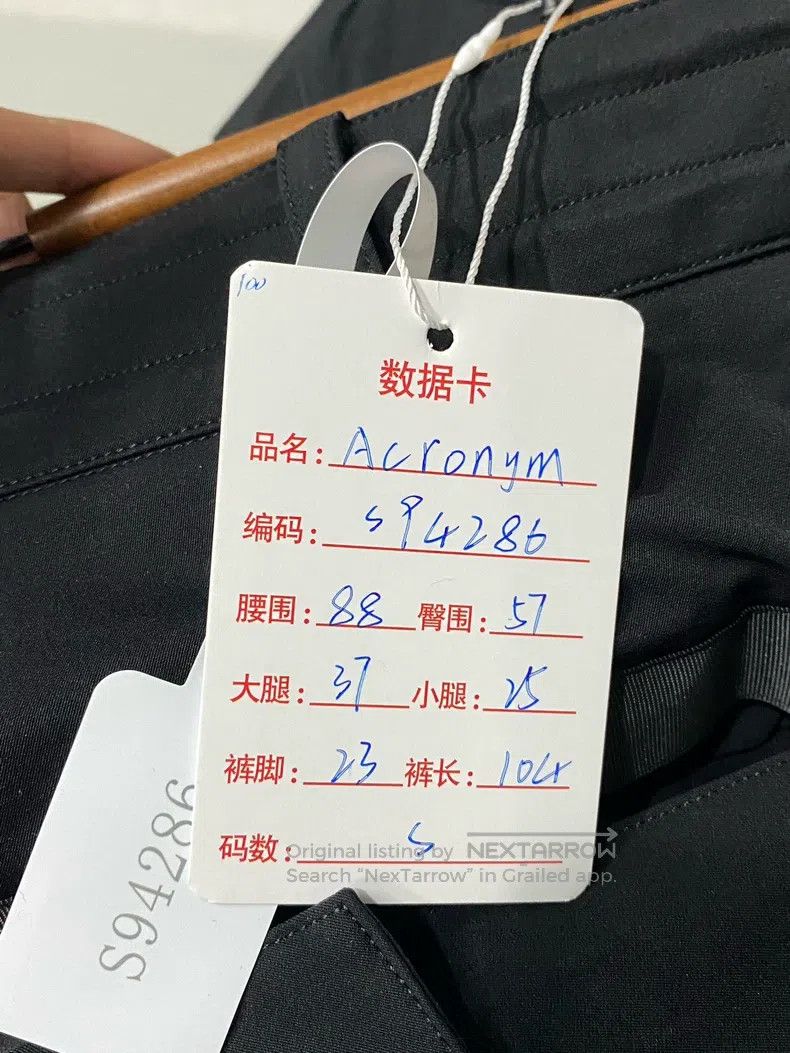 100
数据卡
品名: Acronym
编码: s94286
腰围: 88 臀围: 57
大腿: 37 小腿: 25
裤脚: 23 裤长: 104
码数: S
Original listing by NEXTARROW
Search "NexTarrow" in Grailed app.
S94286